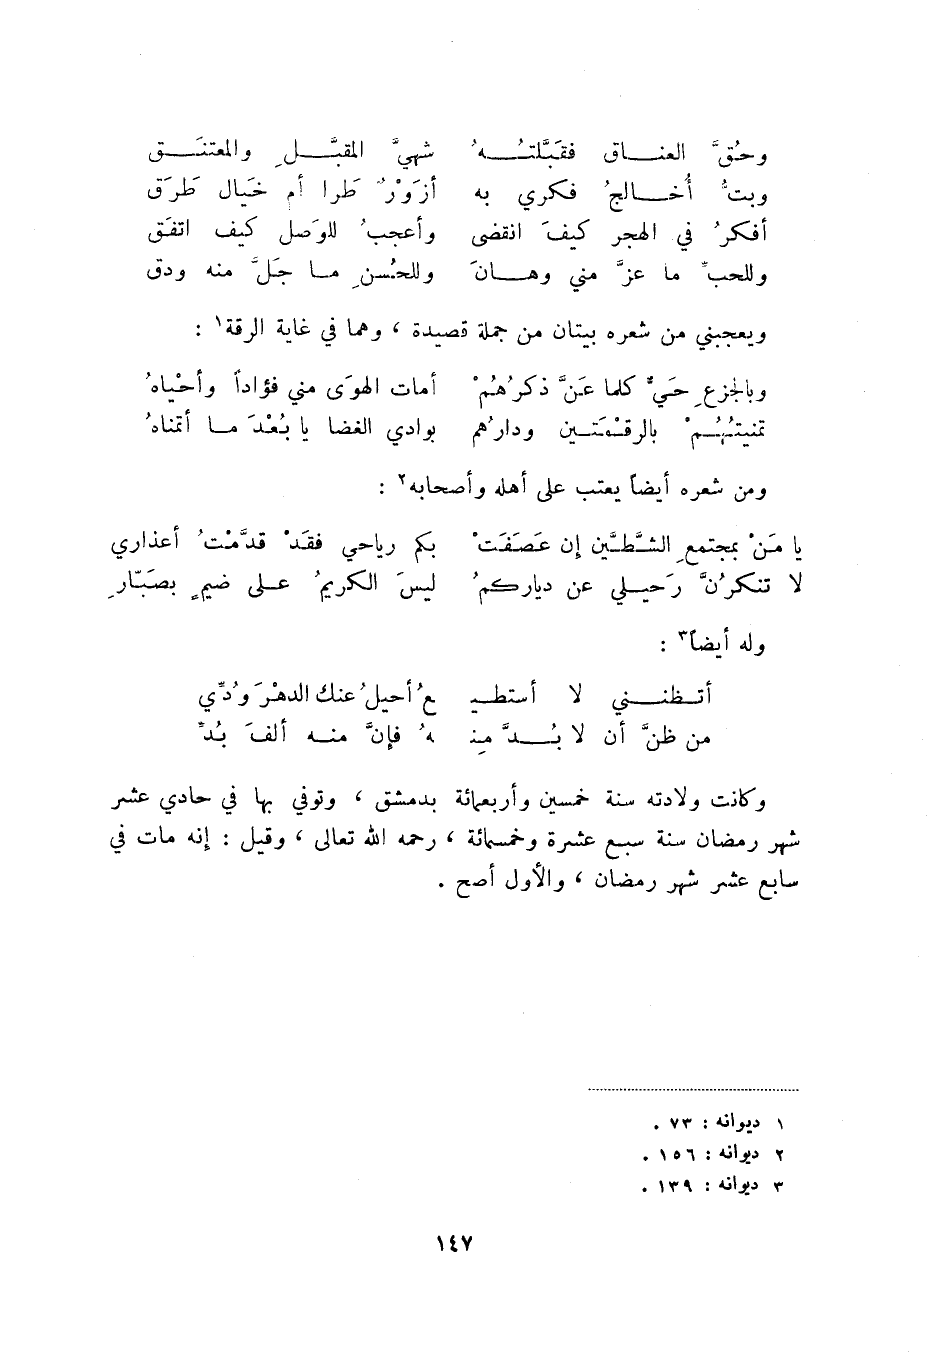 وحُقَّ العنـــاق فقبَّلتـــهُ شهيَّ المقبَّـــلِ والمعتنَـــق
وبتُّ أُخـــالجُ فكري به أزَوْرٌ طَرا أم خَيال طَرَق
أفكرُ في الهجر كيفَ انقضى وأعجبُ للوَصل كيف اتفَق
وللحبِّ ما عزَّ مني وهـــانَ وللحُسنِ مـا جَلَّ منه ودق
ويعجبني من شعره بيتان من جملة قصيدة ، وهما في غاية الرقة١ :
وبالجزعِ حَيٌّ كلما عَنَّ ذكرُهُمْ أمات الهوَى مني فؤاداً وأحْياهُ
تمنيتُهُمْ بالرقْمَتَـين ودارُهم بوادي الغضا يا بُعْدَ مـا أتمناهُ
ومن شعره أيضاً يعتب على أهله وأصحابه٢ :
يا مَنْ بمجتمعِ الشَّطَّين إن عَصَفَتْ بكم رياحي فقَدْ قدَّمْتُ أعذاري
لا تنكرُنَّ رَحيـلي عن دياركمُ ليسَ الكريمُ عـلى ضيمٍ بصَبّارِ
وله أيضاً٣ :
أتـظنـــني لا أستطيـ ـعُ أحيلُ عنك الدهْرَ وُدِّي
من ظنَّ أن لا بُـــدَّ منـ ـهُ فإنَّ منـه ألفَ بُدِّ
وكانت ولادته سنة خمسين وأربعمائة بدمشق ، وتوفي بها في حادي عشر
شهر رمضان سنة سبع عشرة وخمسمائة ، رحمه الله تعالى ، وقيل : إنه مات في
سابع عشر شهر رمضان ، والأول أصح .
١ ديوانه : ٧٣ .
٢ ديوانه : ١٥٦ .
٣ ديوانه : ١٣٩ .
١٤٧